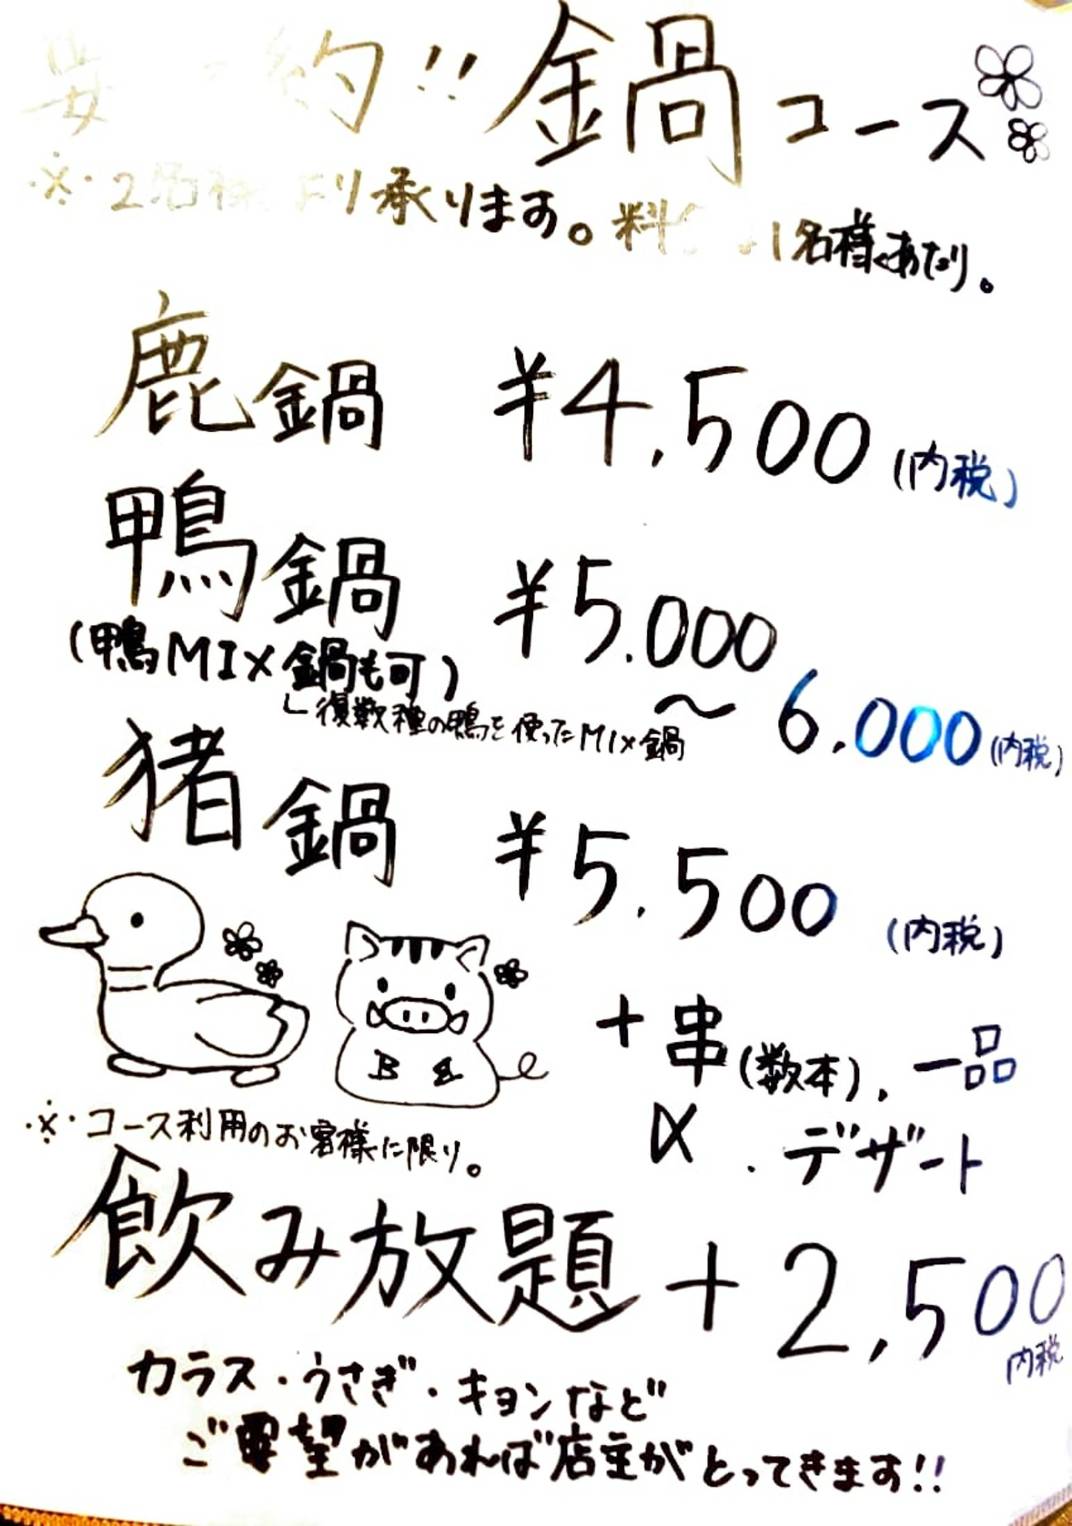 要予約!! 鍋コース
※2名様より承ります。料金は1名様あたり。
鹿鍋 ¥4,500 (内税)
鴨鍋 ¥5.000
(鴨MIX鍋も可)
〜6.000 (内税)
復数種の鴨を使ったMIX鍋
猪鍋 ¥5.500 (内税)
+串(数本)、一品
デザート
※コース利用のお客様に限り。
飲み放題+2,500
内税
カラス・うさぎ・キョンなど
ご要望があれば店主がとってきます!!